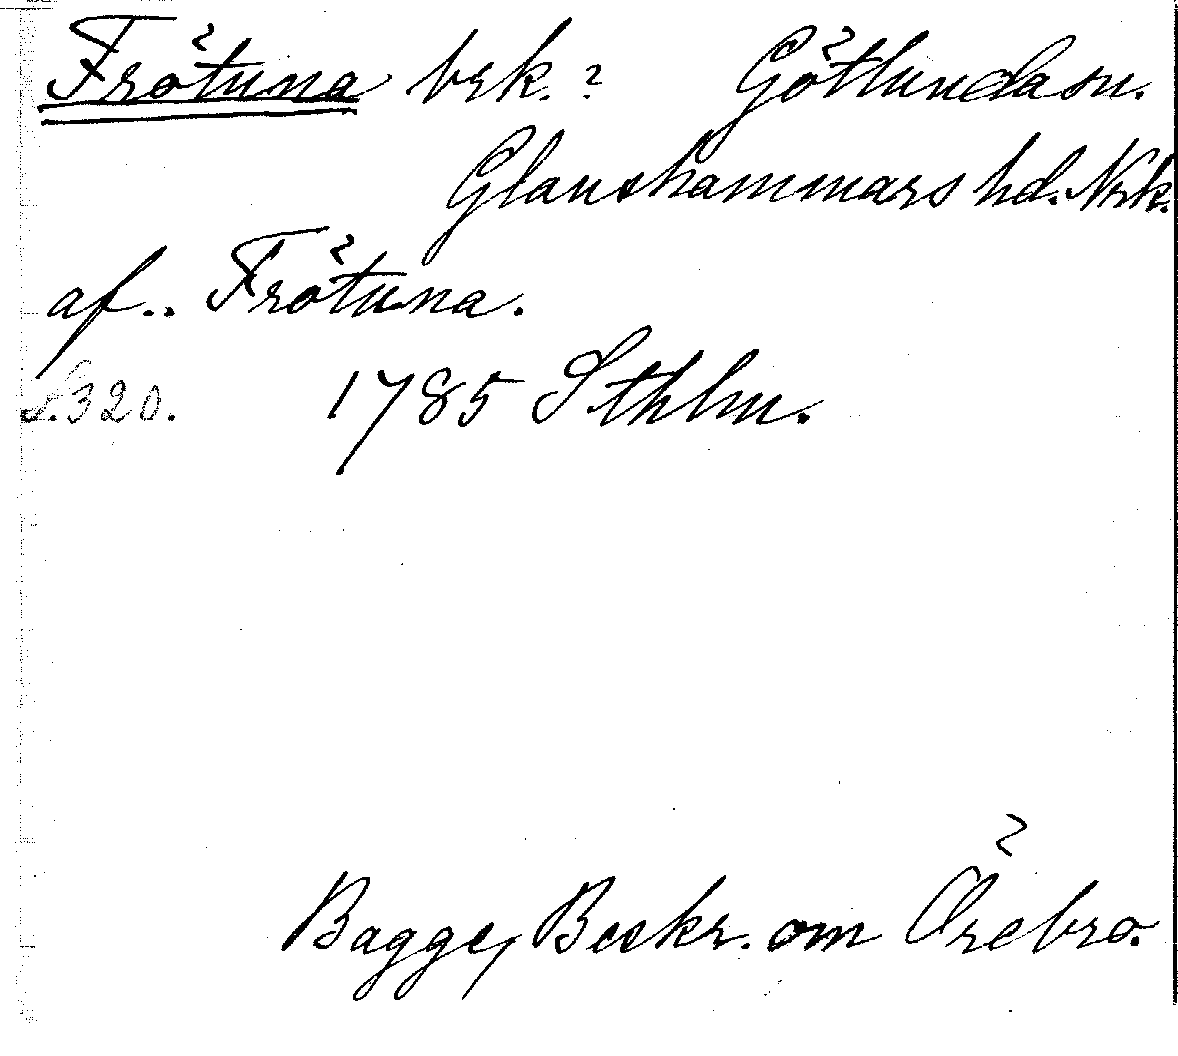 Frötuna brk.? Götlunda sn.
Glanshammars hd. Nrk.
af.. Frötuna.
S.320. 1785 Sthlm.
Bagge, Beskr. om Örebro.